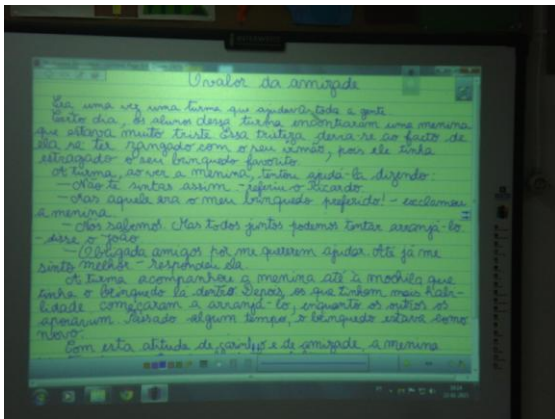 O valor da amizade
Era uma vez uma turma que ajudava toda a gente.
Certo dia, os alunos dessa turma encontraram uma menina
que estava muito triste. Essa tristeza devia-se ao facto de
ela se ter zangado com o seu irmão, pois ele tinha
estragado o seu brinquedo favorito.
A turma, ao ver a menina, tentou ajudá-la dizendo:
— Não te sintas assim - referiu o Ricardo.
— Mas aquele era o meu brinquedo preferido! - exclamou
a menina.
— Nós sabemos. Mas todos juntos podemos tentar arranjá-lo
- disse o João.
— Obrigada amigos por me quererem ajudar. Até já me
sinto melhor - respondeu ela.
A turma acompanhou a menina até à mochila que
tinha o brinquedo lá dentro. Depois, os que tinham mais habi-
lidade, começaram a arranjá-lo, enquanto os outros os
apoiavam. Passado algum tempo, o brinquedo estava como
novo.
Com esta atitude de carinho e de amizade, a menina